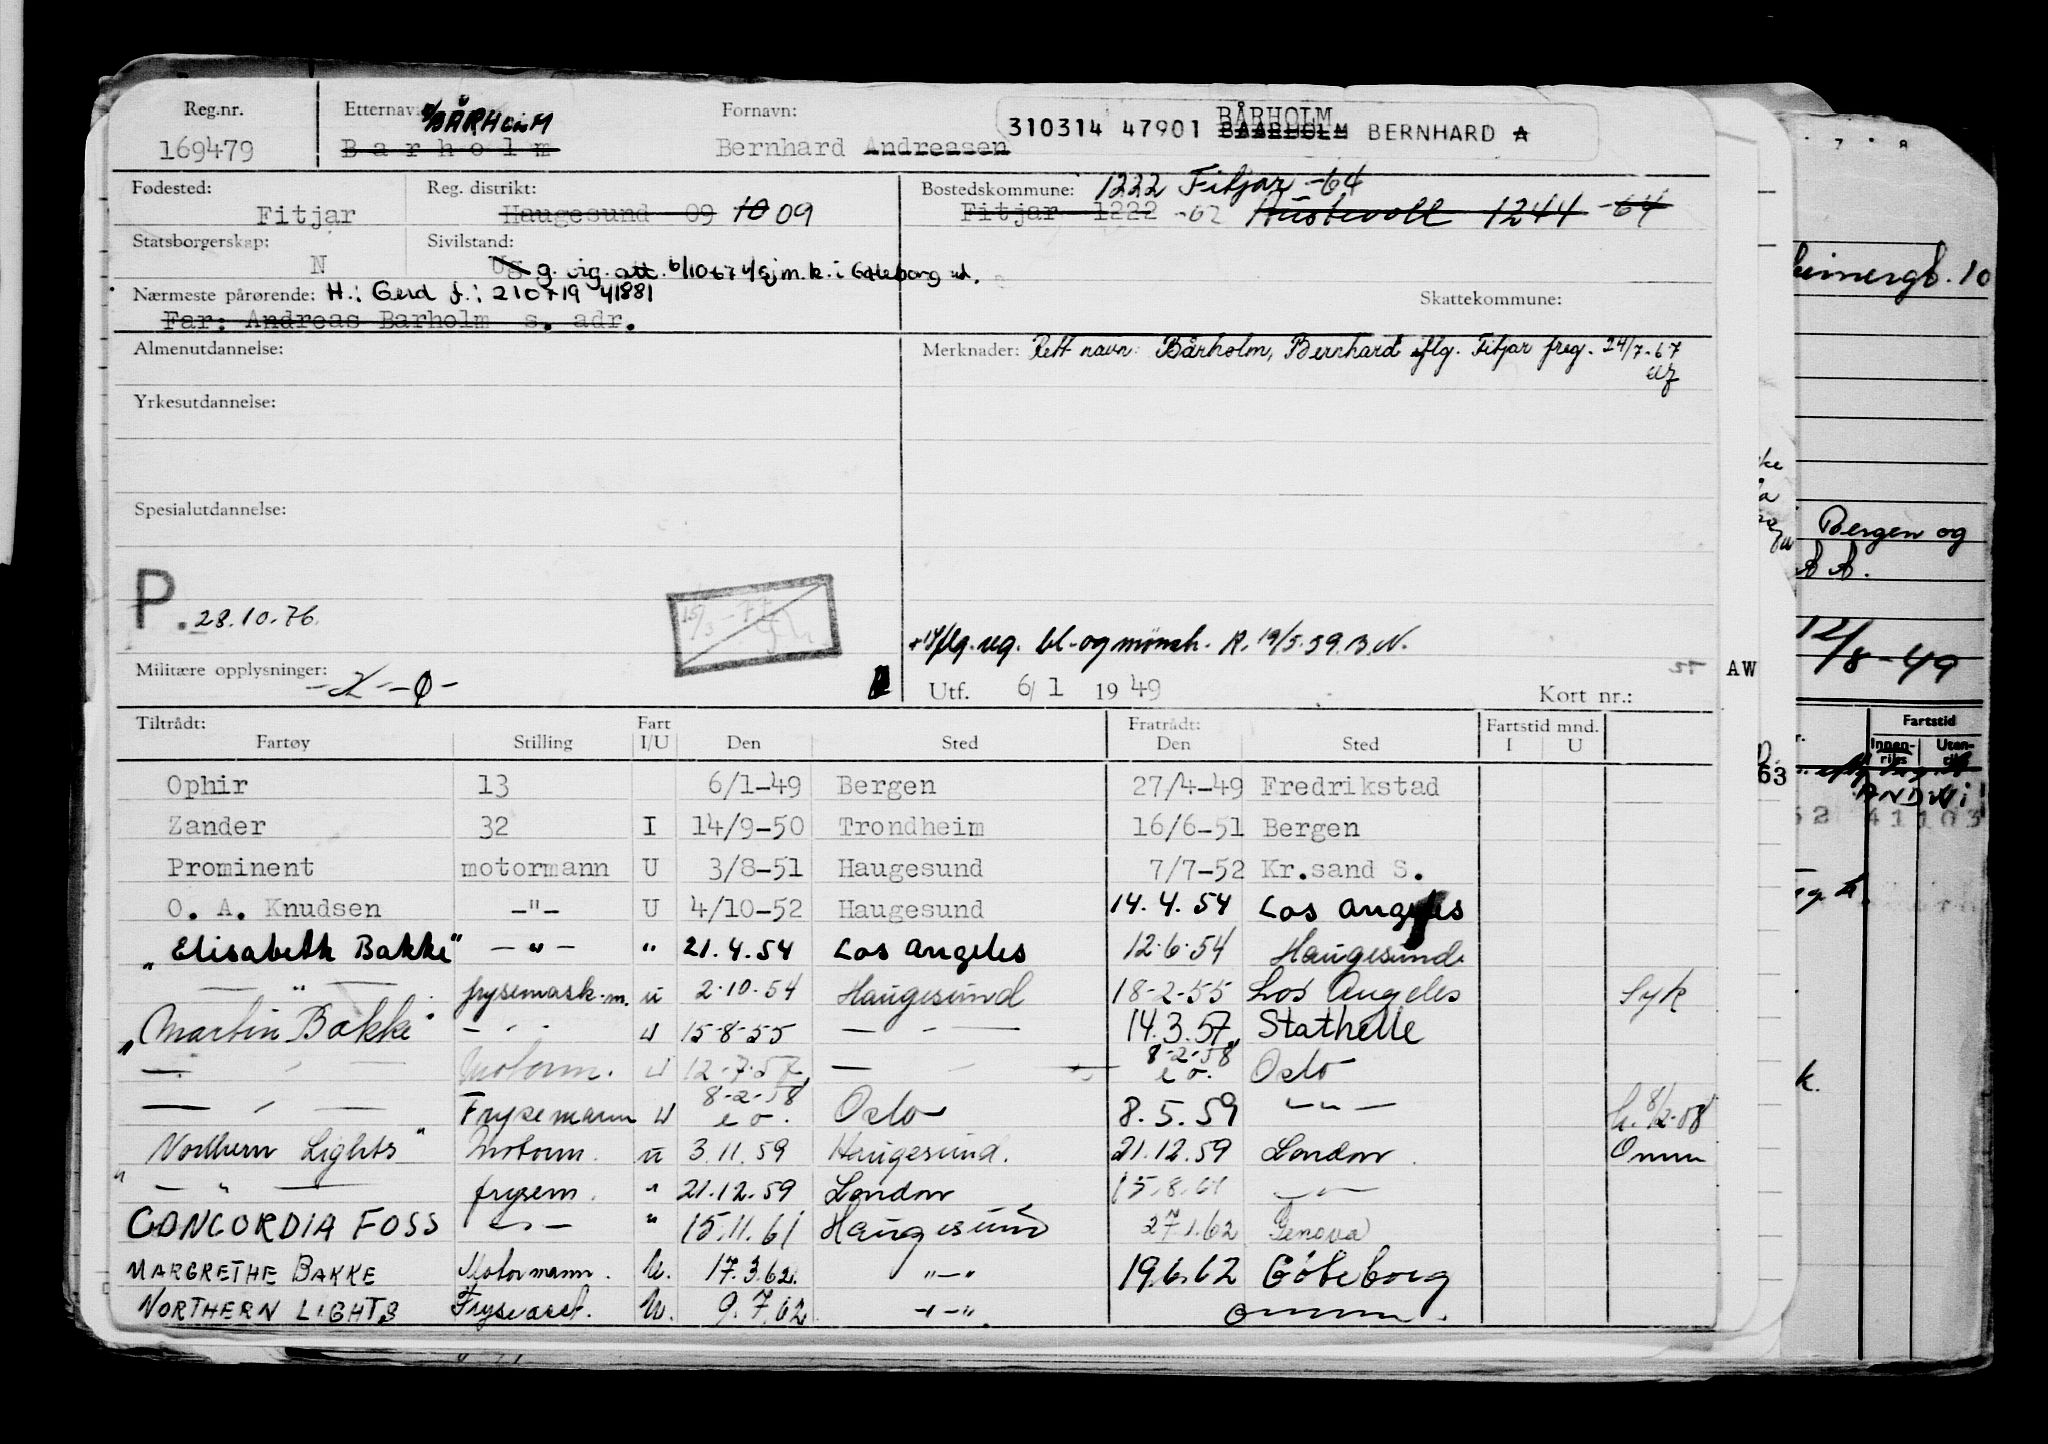 Reg.nr. Etternavn: BÅRHOLM Fornavn: BÅRHOLM
169479 Barholm Bernhard Andreasen 310314 47901 BAARHOLM BERNHARD A
Fødested: Reg. distrikt: Bostedskommune: 1222 Fitjar -64
Fitjar Haugesund 09 10 09 Fitjar 1222 -62 Austevoll 1244 -64
Statsborgerskap: Sivilstand:
N Ug g. vig. att. 6/10-67 v/sjm.k. i Göteborg
Nærmeste pårørende: H.: Gerd f.: 210719 41881 Skattekommune:
Far: Andreas Barholm s. adr.
Almenutdannelse: Merknader: Rett navn: Bårholm, Bernhard iflg. Fitjar freg. 24/7-67
Yrkesutdannelse:
Spesialutdannelse:
P. 28.10.76 15/3-77
iflg. reg. bl.-og mønstr. R. 19/5.59. B.N.
Militære opplysninger: Utf. 6/1 1949 Kort nr.:
AW
Tiltrådt: Fart Fratrådt: Fartstid mnd.
Fartøy Stilling I/U Den Sted Den Sted I U
Ophir 13 6/1-49 Bergen 27/4-49 Fredrikstad
Zander 32 I 14/9-50 Trondheim 16/6-51 Bergen
Prominent motormann U 3/8-51 Haugesund 7/7-52 Kr.sand S.
O. A. Knudsen -"- U 4/10-52 Haugesund 14.4.54 Los Angeles
"Elisabeth Bakke" -"- " 21.4.54 Los Angeles 12.6.54 Haugesund
— " — frysemask.m. u 2.10.54 Haugesund 18-2-55 Los Angeles Syk
"Martin Bakke" - " - U 15-8-55 — " — 14.3.57 Stathelle
— " — Motorm. U 12-7-57 — " — 8-2-58 e o. Oslo
— " — Frysemann U 8-2-58 e o. Oslo 8.5.59 — " —
"Northern Lights" Motorm. u 3.11.59 Haugesund. 21.12.59 London Omm
— " — frysem. " 21.12.59 London 15.8.61 — " —
CONCORDIA FOSS — " — " 15.11.61 Haugesund 27.1.62 Genova
MARGRETHE BAKKE Motormann. U. 17.3.62. "—" 19.6.62 Göteborg
NORTHERN LIGHTS U. 9.7.62 "—"
Bergen og
12/8-49
Fartstid
Innen-riks Uten-riks
63